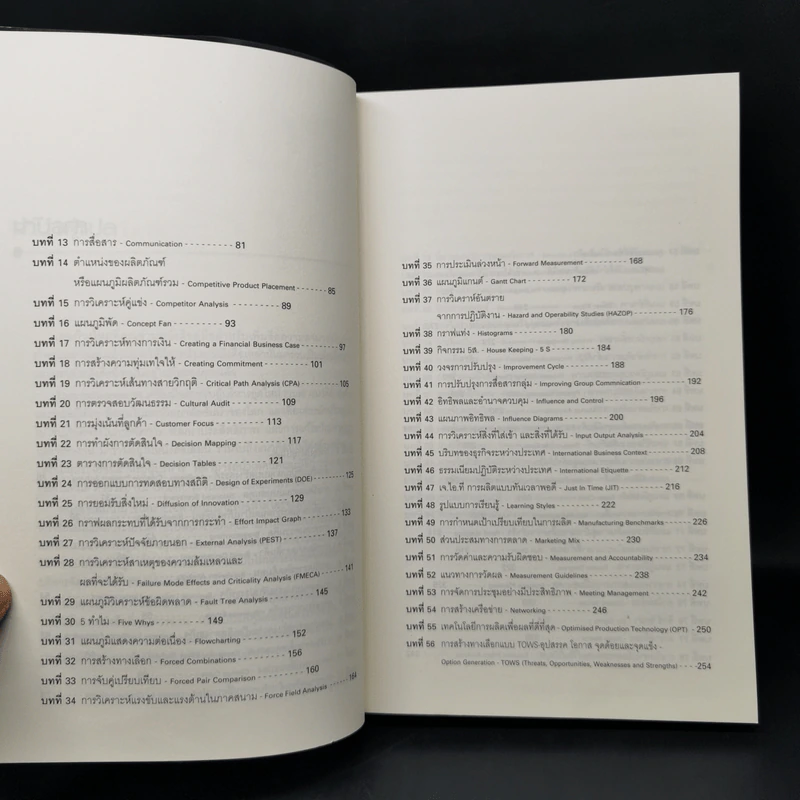 บทที่ 13 การสื่อสาร - Communication - - - - - - - - - 81
บทที่ 14 ตำแหน่งของผลิตภัณฑ์
หรือแผนภูมิผลิตภัณฑ์รวม - Competitive Product Placement - - - - - - 85
บทที่ 15 การวิเคราะห์คู่แข่ง - Competitor Analysis - - - - - - - - - 89
บทที่ 16 แผนภูมิพัด - Concept Fan - - - - - - - - - 93
บทที่ 17 การวิเคราะห์ทางการเงิน - Creating a Financial Business Case - - - - 97
บทที่ 18 การสร้างความทุ่มเทใจให้ - Creating Commitment - - - - - - - - - 101
บทที่ 19 การวิเคราะห์เส้นทางสายวิกฤติ - Critical Path Analysis (CPA) - - - - - - - 105
บทที่ 20 การตรวจสอบวัฒนธรรม - Cultural Audit - - - - - - - - - 109
บทที่ 21 การมุ่งเน้นที่ลูกค้า - Customer Focus - - - - - - - - - 113
บทที่ 22 การทำผังการตัดสินใจ - Decision Mapping - - - - - - - - - 117
บทที่ 23 ตารางการตัดสินใจ - Decision Tables - - - - - - - - - 121
บทที่ 24 การออกแบบการทดสอบทางสถิติ - Design of Experiments (DOE) - - - - - - 125
บทที่ 25 การยอมรับสิ่งใหม่ - Diffusion of Innovation - - - - - - - - - 129
บทที่ 26 กราฟผลกระทบที่ได้รับจากการกระทำ - Effort Impact Graph - - - - - - - 133
บทที่ 27 การวิเคราะห์ปัจจัยภายนอก - External Analysis (PEST) - - - - - - - 137
บทที่ 28 การวิเคราะห์สาเหตุของความล้มเหลวและ
ผลที่จะได้รับ - Failure Mode Effects and Criticality Analysis (FMECA) - - - - - 141
บทที่ 29 แผนภูมิวิเคราะห์ข้อผิดพลาด - Fault Tree Analysis - - - - - - - - - 145
บทที่ 30 5 ทำไม - Five Whys - - - - - - - - - 149
บทที่ 31 แผนภูมิแสดงความต่อเนื่อง - Flowcharting - - - - - - - - - 152
บทที่ 32 การสร้างทางเลือก - Forced Combinations - - - - - - - - - 156
บทที่ 33 การจับคู่เปรียบเทียบ - Forced Pair Comparison - - - - - - - - - 160
บทที่ 34 การวิเคราะห์แรงขับและแรงต้านในภาคสนาม - Force Field Analysis - - - - - 164
บทที่ 35 การประเมินล่วงหน้า - Forward Measurement - - - - - - - - - 168
บทที่ 36 แผนภูมิแกนต์ - Gantt Chart - - - - - - - - - 172
บทที่ 37 การวิเคราห์อันตราย
จากการปฏิบัติงาน - Hazard and Operability Studies (HAZOP) - - - - - - - - - 176
บทที่ 38 กราฟแท่ง - Histograms - - - - - - - - - 180
บทที่ 39 กิจกรรม 5ส. - House Keeping - 5 S - - - - - - - - - 184
บทที่ 40 วงจรการปรับปรุง - Improvement Cycle - - - - - - - - - 188
บทที่ 41 การปรับปรุงการสื่อสารกลุ่ม - Improving Group Commnication - - - - - - - - - 192
บทที่ 42 อิทธิพลและอำนาจควบคุม - Influence and Control - - - - - - - - - 196
บทที่ 43 แผนภาพอิทธิพล - Influence Diagrams - - - - - - - - - 200
บทที่ 44 การวิเคราะห์สิ่งที่ใส่เข้า และสิ่งที่ได้รับ - Input Output Analysis - - - - - - - - - 204
บทที่ 45 บริบทของธุรกิจระหว่างประเทศ - International Business Context - - - - - - - - - 208
บทที่ 46 ธรรมเนียมปฏิบัติระหว่างประเทศ - International Etiquette - - - - - - - - - 212
บทที่ 47 เจ.ไอ.ที การผลิตแบบทันเวลาพอดี - Just In Time (JIT) - - - - - - - - - 216
บทที่ 48 รูปแบบการเรียนรู้ - Learning Styles - - - - - - - - - 222
บทที่ 49 การกำหนดเป้าเปรียบเทียบในการผลิต - Manufacturing Benchmarks - - - - - - 226
บทที่ 50 ส่วนประสมทางการตลาด - Marketing Mix - - - - - - - - - 230
บทที่ 51 การวัดค่าและความรับผิดชอบ - Measurement and Accountability - - - - - - - - - 234
บทที่ 52 แนวทางการวัดผล - Measurement Guidelines - - - - - - - - - 238
บทที่ 53 การจัดการประชุมอย่างมีประสิทธิภาพ - Meeting Management - - - - - - - - - 242
บทที่ 54 การสร้างเครือข่าย - Networking - - - - - - - - - 246
บทที่ 55 เทคโนโลยีการผลิตเพื่อผลที่ดีที่สุด - Optimised Production Technology (OPT) - - 250
บทที่ 56 การสร้างทางเลือกแบบ TOWS-อุปสรรค โอกาส จุดด้อยและจุดแข็ง -
Option Generation - TOWS (Threats, Opportunities, Weaknesses and Strengths) - - - - 254